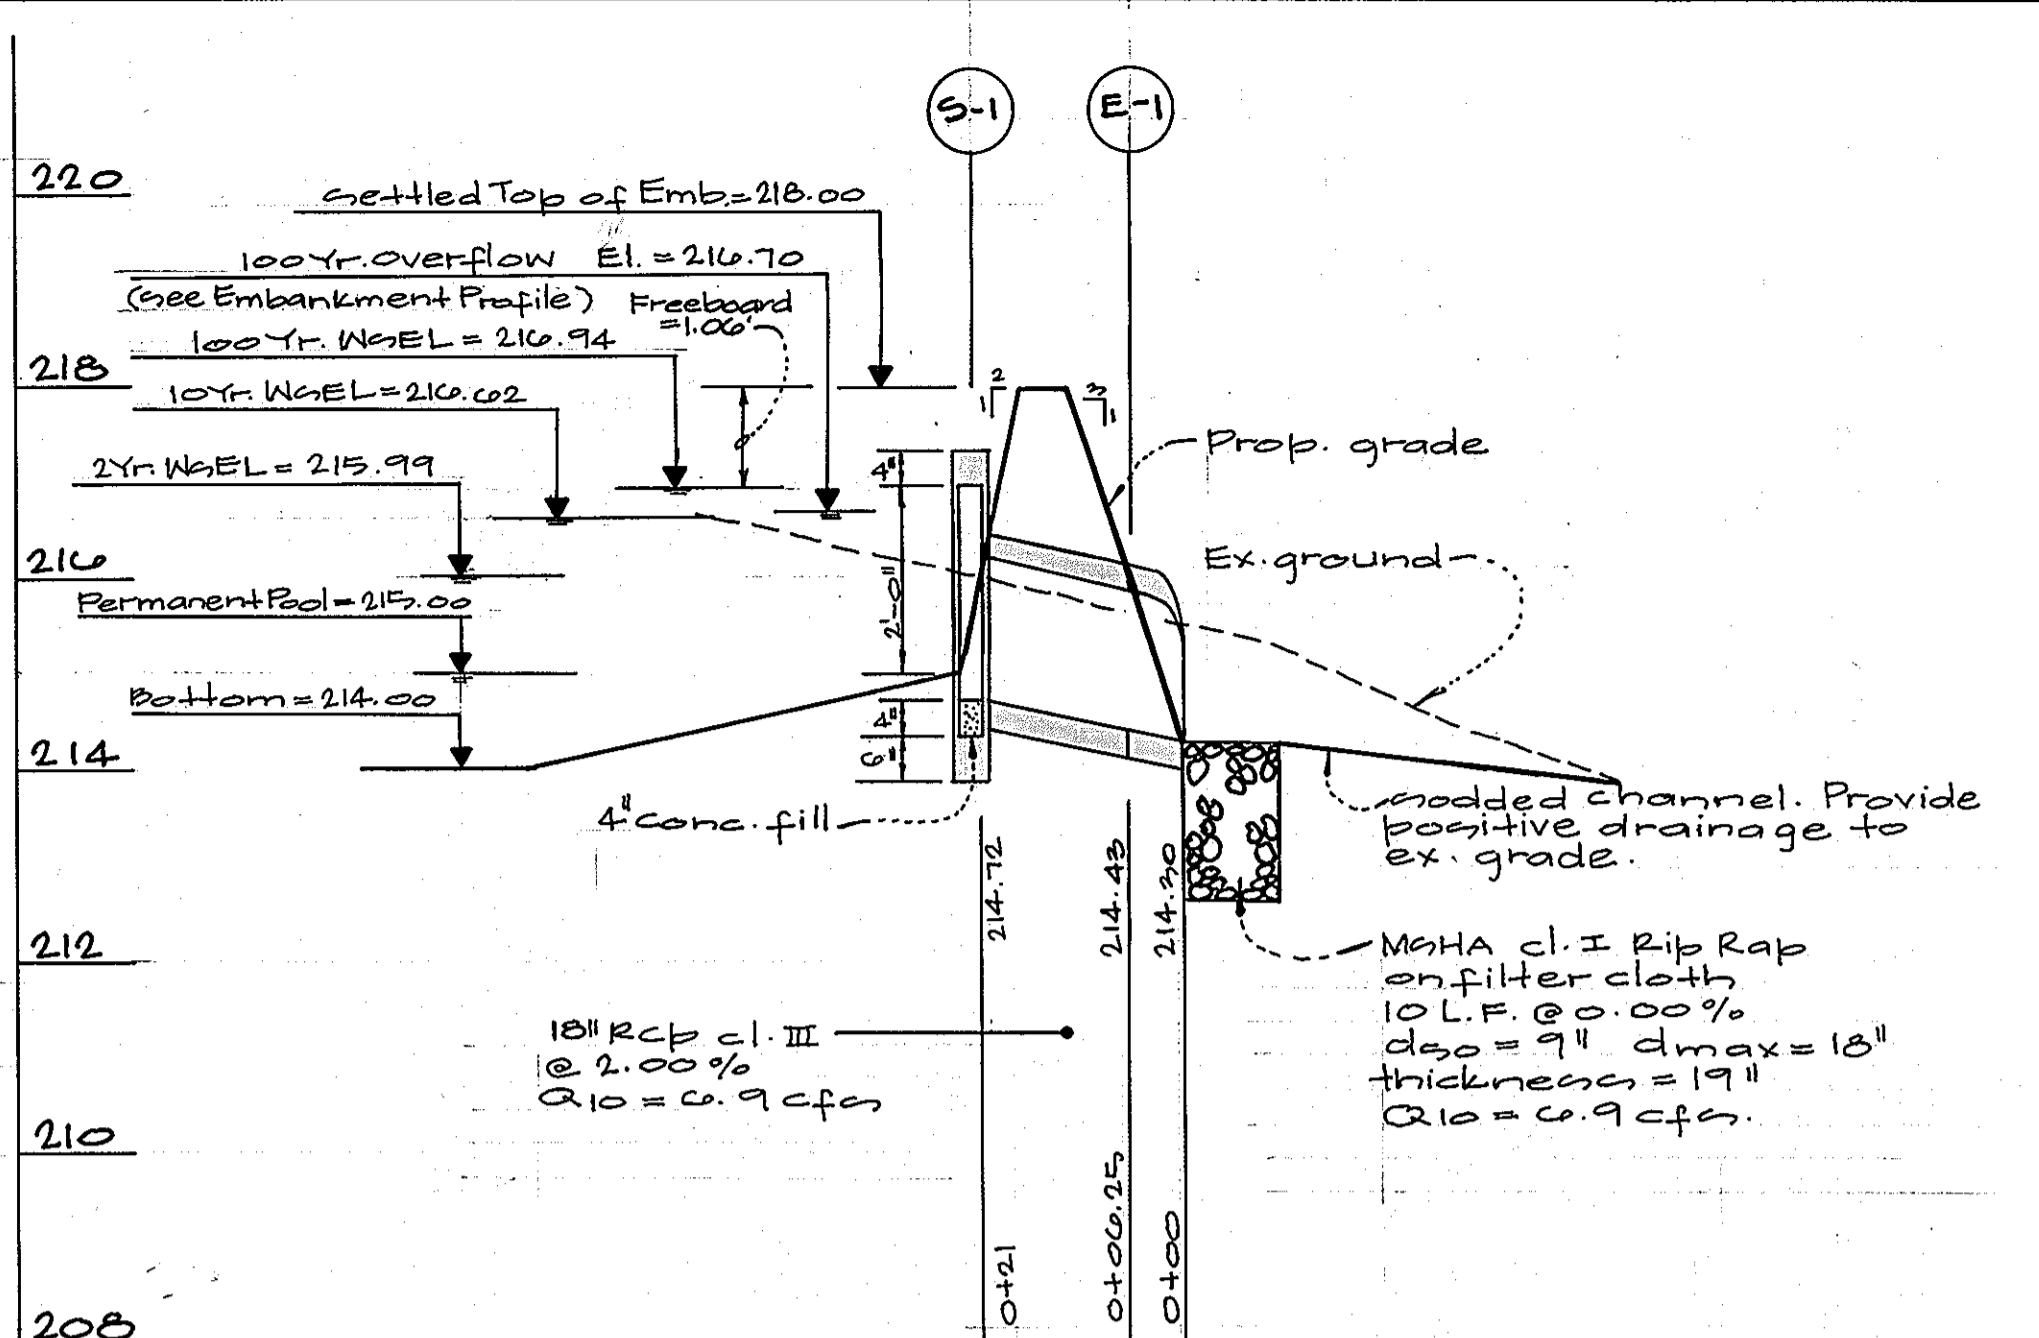 S-1
E-1
220
Settled Top of Emb.=218.00
100 Yr. Overflow El. = 216.70
(See Embankment Profile)
Freeboard
=1.06'
100 Yr. WSEL = 216.94
218
10 Yr. WSEL = 216.62
2
1
3
1
Prop. grade
2 Yr. WSEL = 215.99
4"
216
Ex. ground
Permanent Pool = 215.00
2'-0"
Bottom = 214.00
4"
214
6"
4" conc. fill
Sodded channel. Provide
positive drainage to
ex. grade.
214.72
214.43
214.30
212
MSHA cl. I Rip Rap
on filter cloth
10 L.F. @ 0.00%
d50 = 9" dmax = 18"
thickness = 19"
Q10 = 6.9 cfs.
18" RCP cl. III
@ 2.00%
Q10 = 6.9 cfs
210
0+21
0+06.25
0+00
208